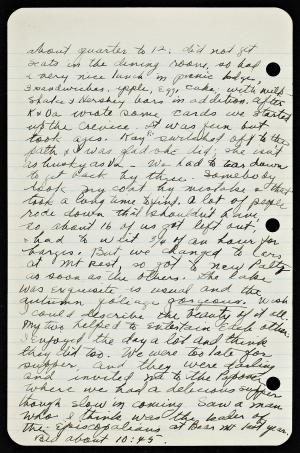 about quarter to 12; did not get
seats in the dining room, so had
a very nice lunch in picnic lodge,
3 sandwiches, apple, egg, cake, with milk
shake & Hershey bars in addition. After
K & Da wrote some cards we started
up the crevice. It was fun but
took ages. Kay switched off to the
path, & I was glad she did; she isn't
as husky as Da - We had to tear down
to get back by three. Somebody
took my coat by mistake & that
took a long time to find. A lot of people
rode down that shouldn't have,
so, about 16 of us got left out,
& had to wait 3/4 of an hour for
barges. But we changed to cars
at Mt Rest so got to New Paltz
as soon as the others. The lake
was exquisite as usual and the
autumn foliage gorgeous. Wish
I could describe the beauty of it all.
My two helped to entertain each other.
I enjoyed the day a lot and think
they did too. We were too late for
supper, and they were
and invited me to the
where we had a delicious supper
though slow in coming. Saw a man
who I think was the leader of
the Episcopalians at Bear Mt last year.
Bed about 10:45.